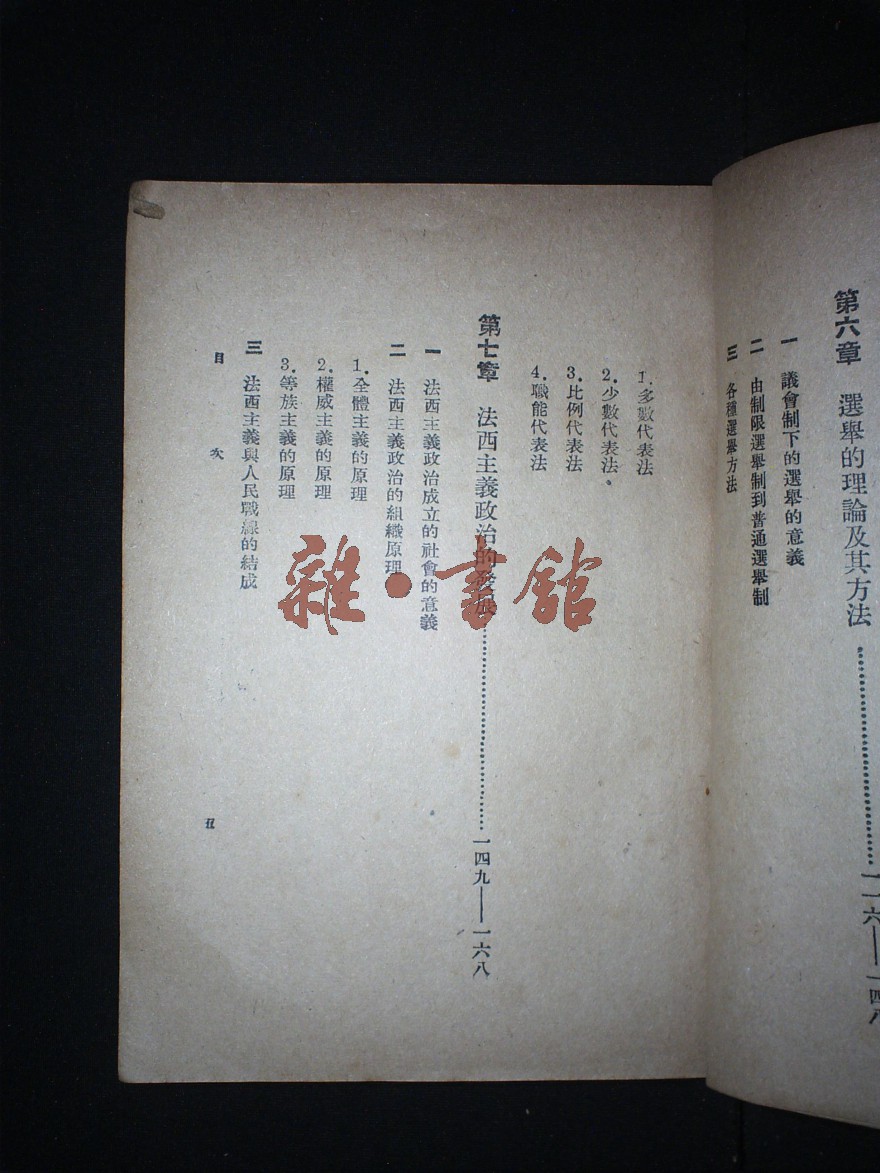 第六章 選舉的理論及其方法…………一一六——一四八
一 議會制下的選舉的意義
二 由制限選舉制到普通選舉制
三 各種選舉方法
1.多數代表法
2.少數代表法
3.比例代表法
4.職能代表法
第七章 法西主義政治的發展…………一四九——一六八
一 法西主義政治成立的社會的意義
二 法西主義政治的組織原理
1.全體主義的原理
2.權威主義的原理
3.等族主義的原理
三 法西主義與人民戰線的結成
目次 丑
雜·書館